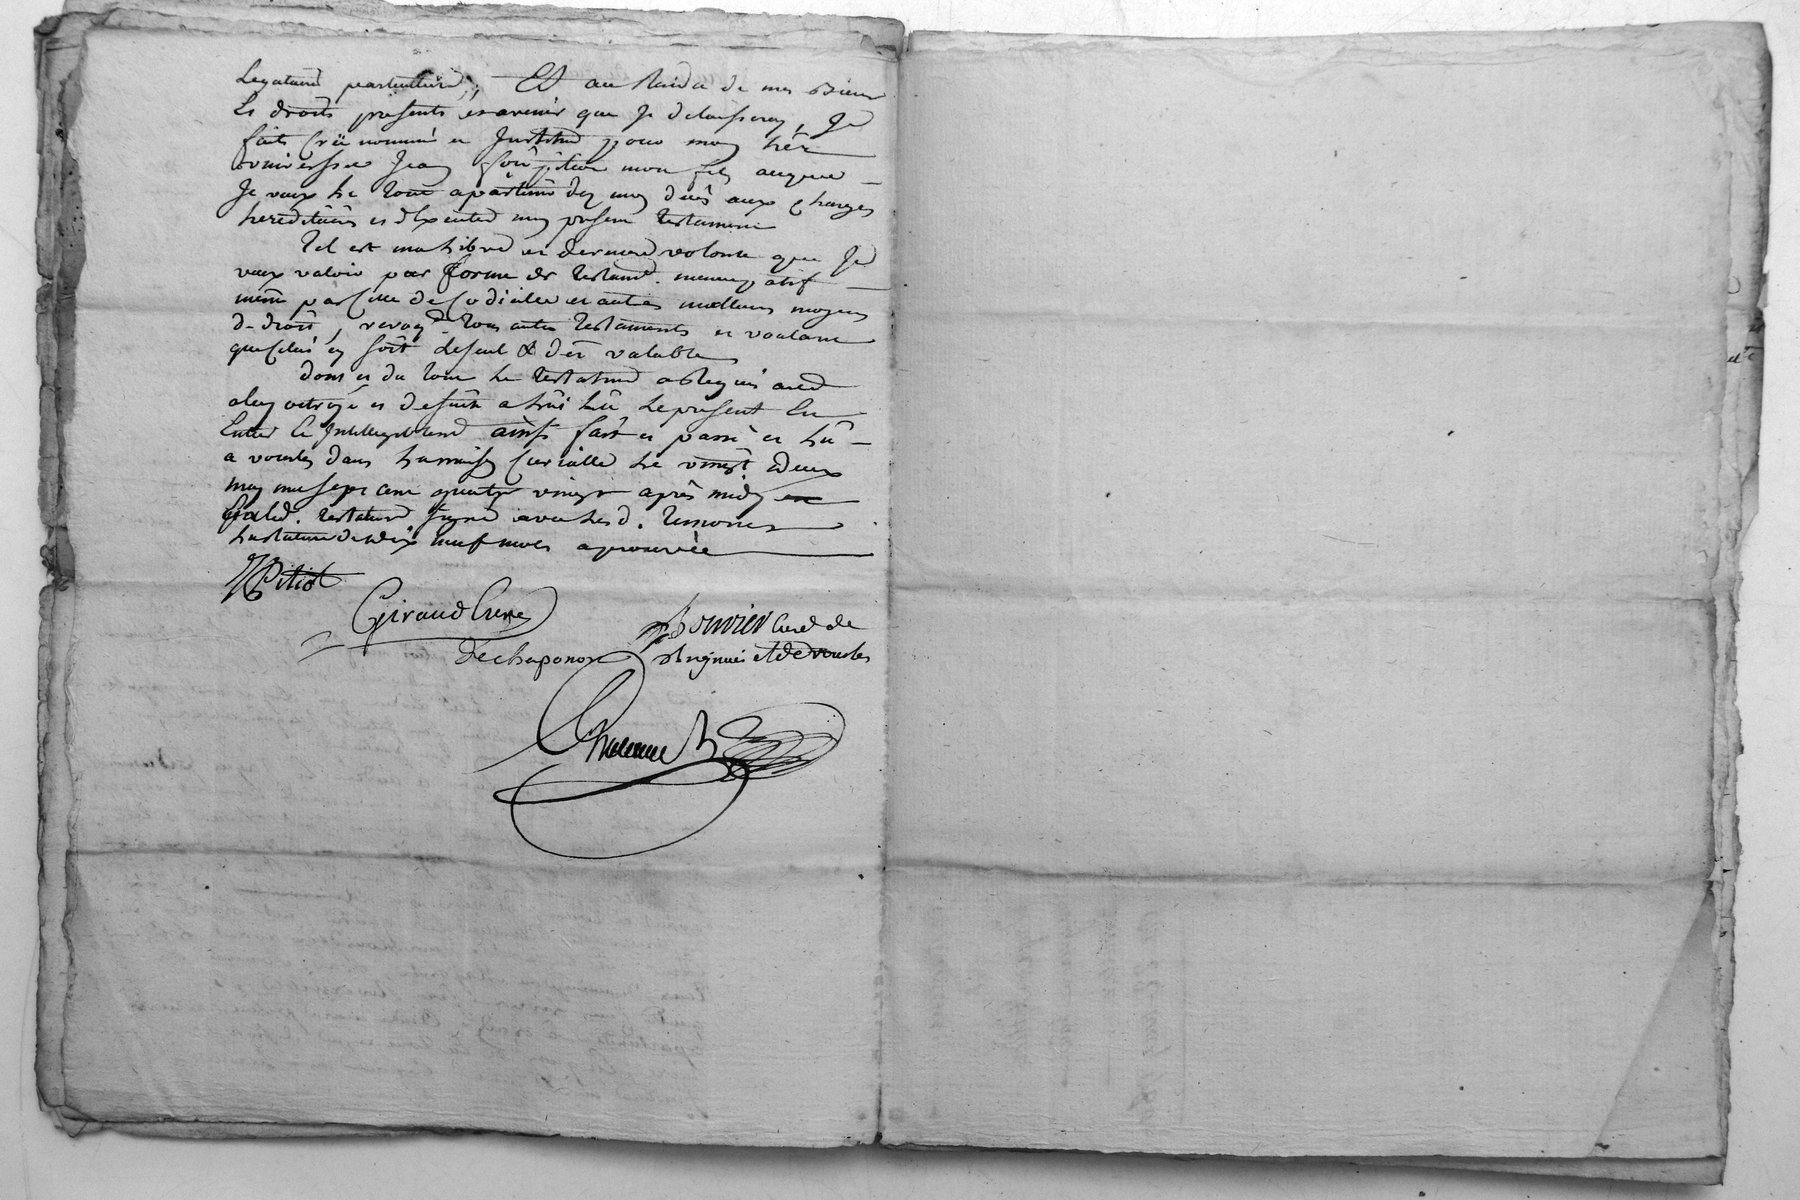 Legataire particuliere, Et au Raidû de mes Biens
Et droits presents et avenir que Je delaisseray, Je
fait Créé nommé et Institue pour mon hēr
universel Jean mon fils auquel
Je veux le tout apartenir des mon deĉes aux charges
hereditaires et d'Executer mon present testament
Tel est ma libre et derniere volonté que Je
veux valoir par forme de testamt. nuncupatif
même par celle de Codicille et autres meilleurs moyens
de droit, revoqt. tous autres testaments et voulant
que Celui cy soit le seul & dēr valable
dont et du tout le testateur a Requis acte
a luy octroyé et de suite a lui lû le present En
Entier Et Intelligiblement ainsy fait et passé et lû
a vourles dans la maison Curialle le vingt deux
may mil sept cent quatre vingt après midy
testateur signé avec les d. temoins
la rature de dix neuf mots aprouvée
Pitiot
Giraud Curé
de chaponost
Bouvier Curé de
Brignais et de vourles